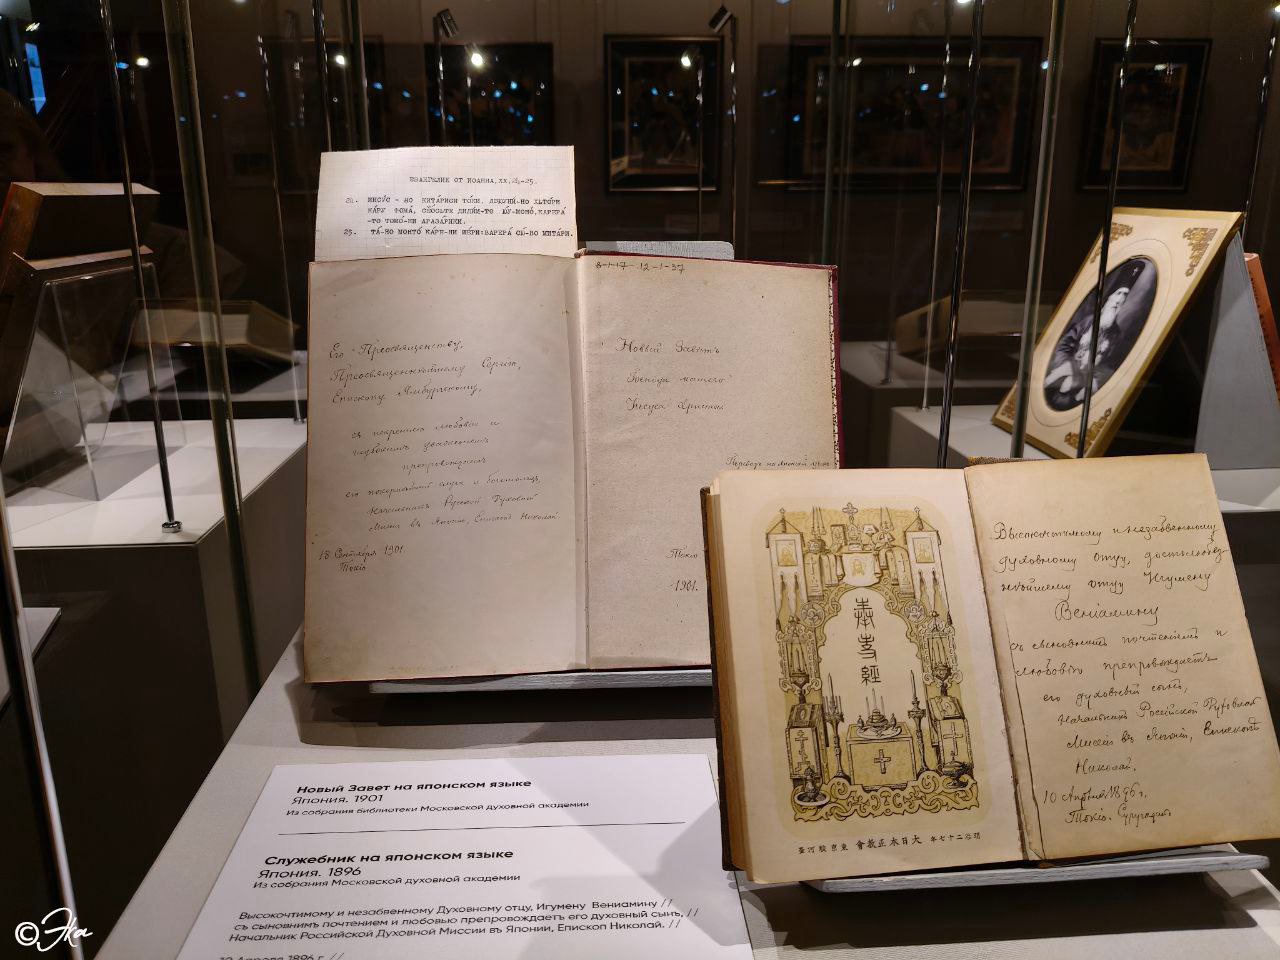 ЕВАНГЕЛИЕ ОТ ИОАННА, XX, 24-25.
24. ИИСУ́С - НО КИТА́РИСИ ТО́КИ,
КА́РУ ФОМА́,
-ТО ТОМО́-НИ АРАЗА́РИКИ.
25. ТА́-НО МОНТО́ КА́РЕ-НИ
8-1-17 12-1-37
Его Преосвященству,
Преосвященнѣйшему Сергію,
Епископу Ямбургскому,
съ искреннею любовью и
глубокимъ уваженіемъ
препровождаетъ
его покорнѣйшій слуга и богомолецъ,
Начальникъ Русской Духовной
Миссіи въ Японіи, Епископъ Николай.
18 Сентября 1901.
Токіо
Новый Завѣтъ
Господа нашего
Іисуса Христа
Переводъ на японскій языкъ
Токіо
1901.
奉事經
大日本正教會
Высокочтимому и незабвенному
духовному отцу,
отцу Игумену
Веніамину
съ сыновнимъ почтеніемъ и
любовію препровождаетъ
его духовный сынъ,
Начальникъ Россійской Духовной
Миссіи въ Японіи, Епископъ
Николай.
10 Апрѣля 1896 г.
Токіо. Суругадай
Новый Завет на японском языке
Япония. 1901
Из собрания библиотеки Московской духовной академии
Служебник на японском языке
Япония. 1896
Из собрания Московской духовной академии
Высокочтимому и незабвенному Духовному отцу, Игумену Вениамину //
съ сыновнимъ почтением и любовью препровождаетъ его духовный сынъ, //
Начальник Российской Духовной Миссии въ Японии, Епископ Николай. //
10 Апреля 1896 г. //
© Эка